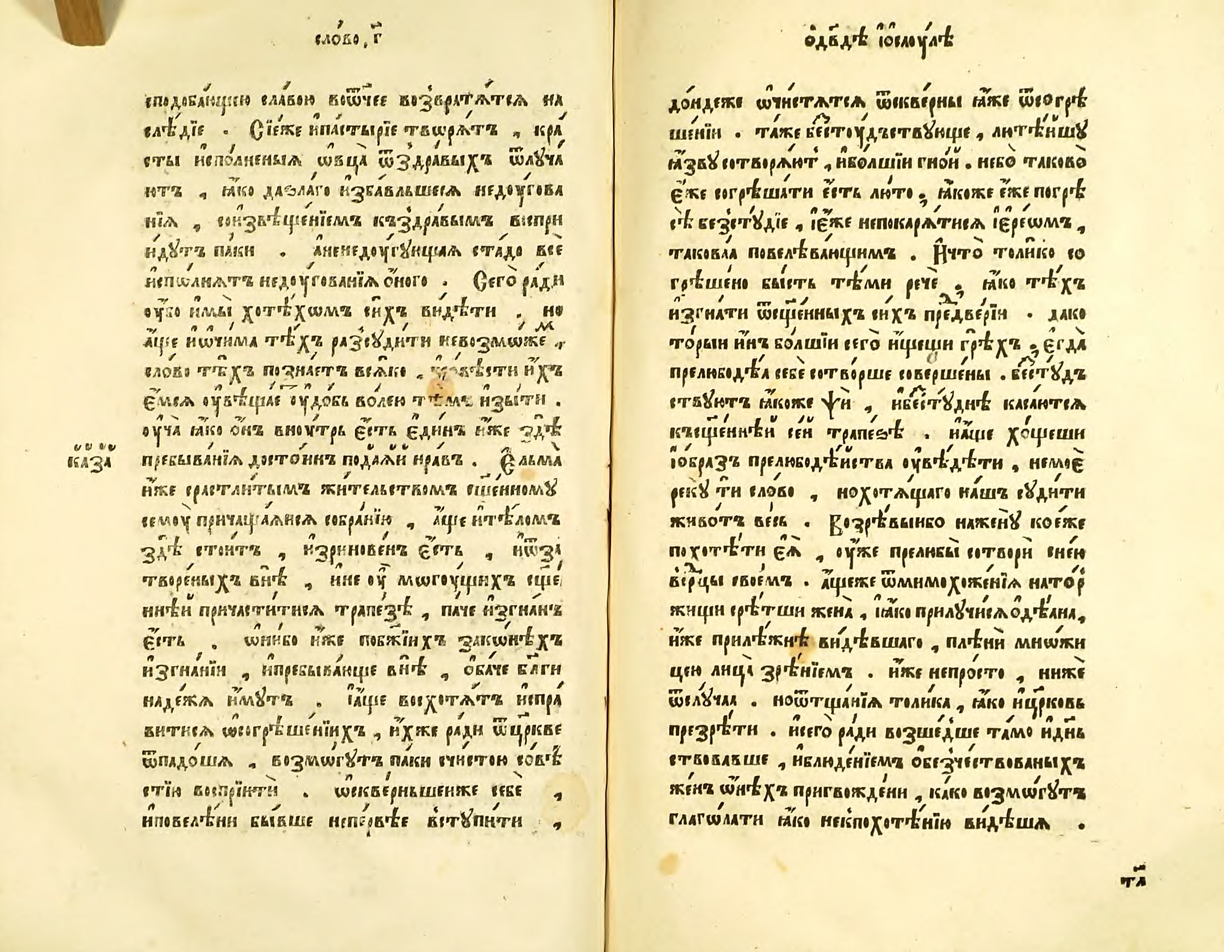 сло́во, г҃
сподоба́ющею сла́вою воѿчее возвратѧ́тсѧ на
слѣ́дїе . Сїе́же и҆па́стырїе творѧ́тъ , кра
сты и҆спо́лненыѧ ѡ҆вца̀ ѿздра́выхъ ѿлуча́
ютъ , ꙗ҆́ко даѕла́го и҆зба́вльшесѧ недоу́гова
нїѧ , соизвѣще́нїемъ къздра́вымъ воспрі
и́дутъ па́ки . а҆ненедоу́гующаѧ стада̀ всѐ
и҆спо́лнѧтъ недоугова́нїѧ о҆́ного . Сего̀ ра́ди
оу҆́бо и҆мы̀ хотѣ́хомъ си́хъ ви́дѣти , но
а҆́ще и҆ѡ҆чи́ма тѣ́хъ разсуди́ти невозмо́жеᲅ ,
сло́во тѣ́хъ позна́етъ всѧ́ко . и҆́хъ
е҆мсѧ оу҆вѣща́е оу҆до́бь во́лею изы́ти .
оу҆ча̀ ꙗ҆́ко о҆́нъ вноу́трь є҆́сть є҆ди́нъ и҆́же здѣ̀
пребыва́нїѧ досто́инъ пода́ѧй нра́въ . Є҆льма̀
и҆́же срастлѣ́нымъ жи́тельствомъ сщ҃е́нному
семоу̀ причаща́ѧисѧ собра́нїю , а҆́ще и҆тѣ́ломъ
здѣ̀ стои́тъ , и҆зринове́нъ є҆́сть , и҆ѿза
творе́ныхъ внѣ̀ , и҆не оу҆̀ могоу́щихъ сщ҃е́
ннѣй причасти́тисѧ трапе́зѣ , па́че и҆згна́нъ
є҆́сть . ѡ҆ни́бо и҆́же побж҃їихъ зако́нѣхъ
и҆згна́нїи , и҆пребыва́юще внѣ̀ , ѻ҆ба́че бл҃ги
наде́жѧ и҆́мутъ . і҆а҆́ще восхотѧ́тъ и҆спра́
витисѧ ѡ҆согрѣше́нїихъ , и҆́хже ра́ди ѿцр҃кве
ѿпадо́шѧ , возмо́гутъ па́ки счи́стою со́вѣ
стїю воспрїи́ти . ѡ҆скве́рньшеиже себѐ ,
и҆повелѣ́ни бы́вше непе́рвѣе вступи́ти ,
каза̀
ѻ҆дв҃дѣ і҆ѻ҆саоу́лѣ
до́ндеже ѡ҆чи́стѧтсѧ ѿскве́рны ꙗ҆́же ѿсогрѣ
ше́нїи . та́же бе́стоу́дъствующе , лютѣ́йшу
ꙗ҆́зву сотворѧ́ют , и҆бо́лшїи гно́й . небо̀ таково̀
є҆́же согрѣша́ти є҆́сть лю́то , ꙗ҆́коже є҆́же погрѣ
сѣ̀ безсту́дїе , і҆є҆́же непокарѧ́тисѧ і҆єре́ѡмъ ,
такова́ѧ повелѣва́ющимъ . И҆что̀ толи́ко со
грѣшено̀ бы́сть тѣ́ми рече̏ , ꙗ҆́ко тѣ́хъ
и҆згна́ти ѿсщ҃е́нныхъ си́хъ предве́рїи . дако
то́рыи и҆́нъ бо́лшїи сего̀ и҆́щеши грѣ́хъ , є҆гда̀
прелюбодѣ́ѧ себѐ сотво́рше соверше́ны . бе́сту́дъ
ствуютъ ꙗ҆́коже ѱѝ , и҆бе́сту́днѣ каса́ютсѧ
къщ҃е́ннѣй се́й трапе́зѣ . и҆а҆́ще хо́щеши
і҆о҆́бразъ прелюбодѣ́йства оу҆вѣ́дѣти , немоє҆
реку̀ ти сло́во , нохотѧ́щаго на́шъ суди́ти
живо́тъ ве́сь . Возрѣ́выибо нажену̀ коє҆́же
похотѣ́ти є҆ѧ̀ , оу҆́же прелюбы̀ сотворѝ сне́ю
всрдцы свое́мъ . а҆́щеже ѿмимохоже́нїѧ нато́р
жищи срѣ́тши жена̀ , ꙗ҆́ко прилучи́сѧ ѻ҆дѣ́ѧна ,
и҆́же прилѣ́жнѣ ви́дѣвшаго , плѣнѝ мно́жи
цею лица̀ зрѣ́нїемъ . и҆́же непро́сто , нижѐ
ѿслу́чаѧ . ноѿтща́нїѧ толи́ка , ꙗ҆́ко и҆цр҃ковь
презрѣ́ти . и҆сего̀ ра́ди возше́дше та́мо и҆дн҃ь
ствовавше , и҆блюде́нїемъ обезче́ствованыхъ
же́нъ ѡ҆нѣ́хъ пригвожде́ни , ка́ко возмо́гутъ
глаго́лати ꙗ҆́ко некпохотѣ́нїю ви́дѣшѧ .
тл҃